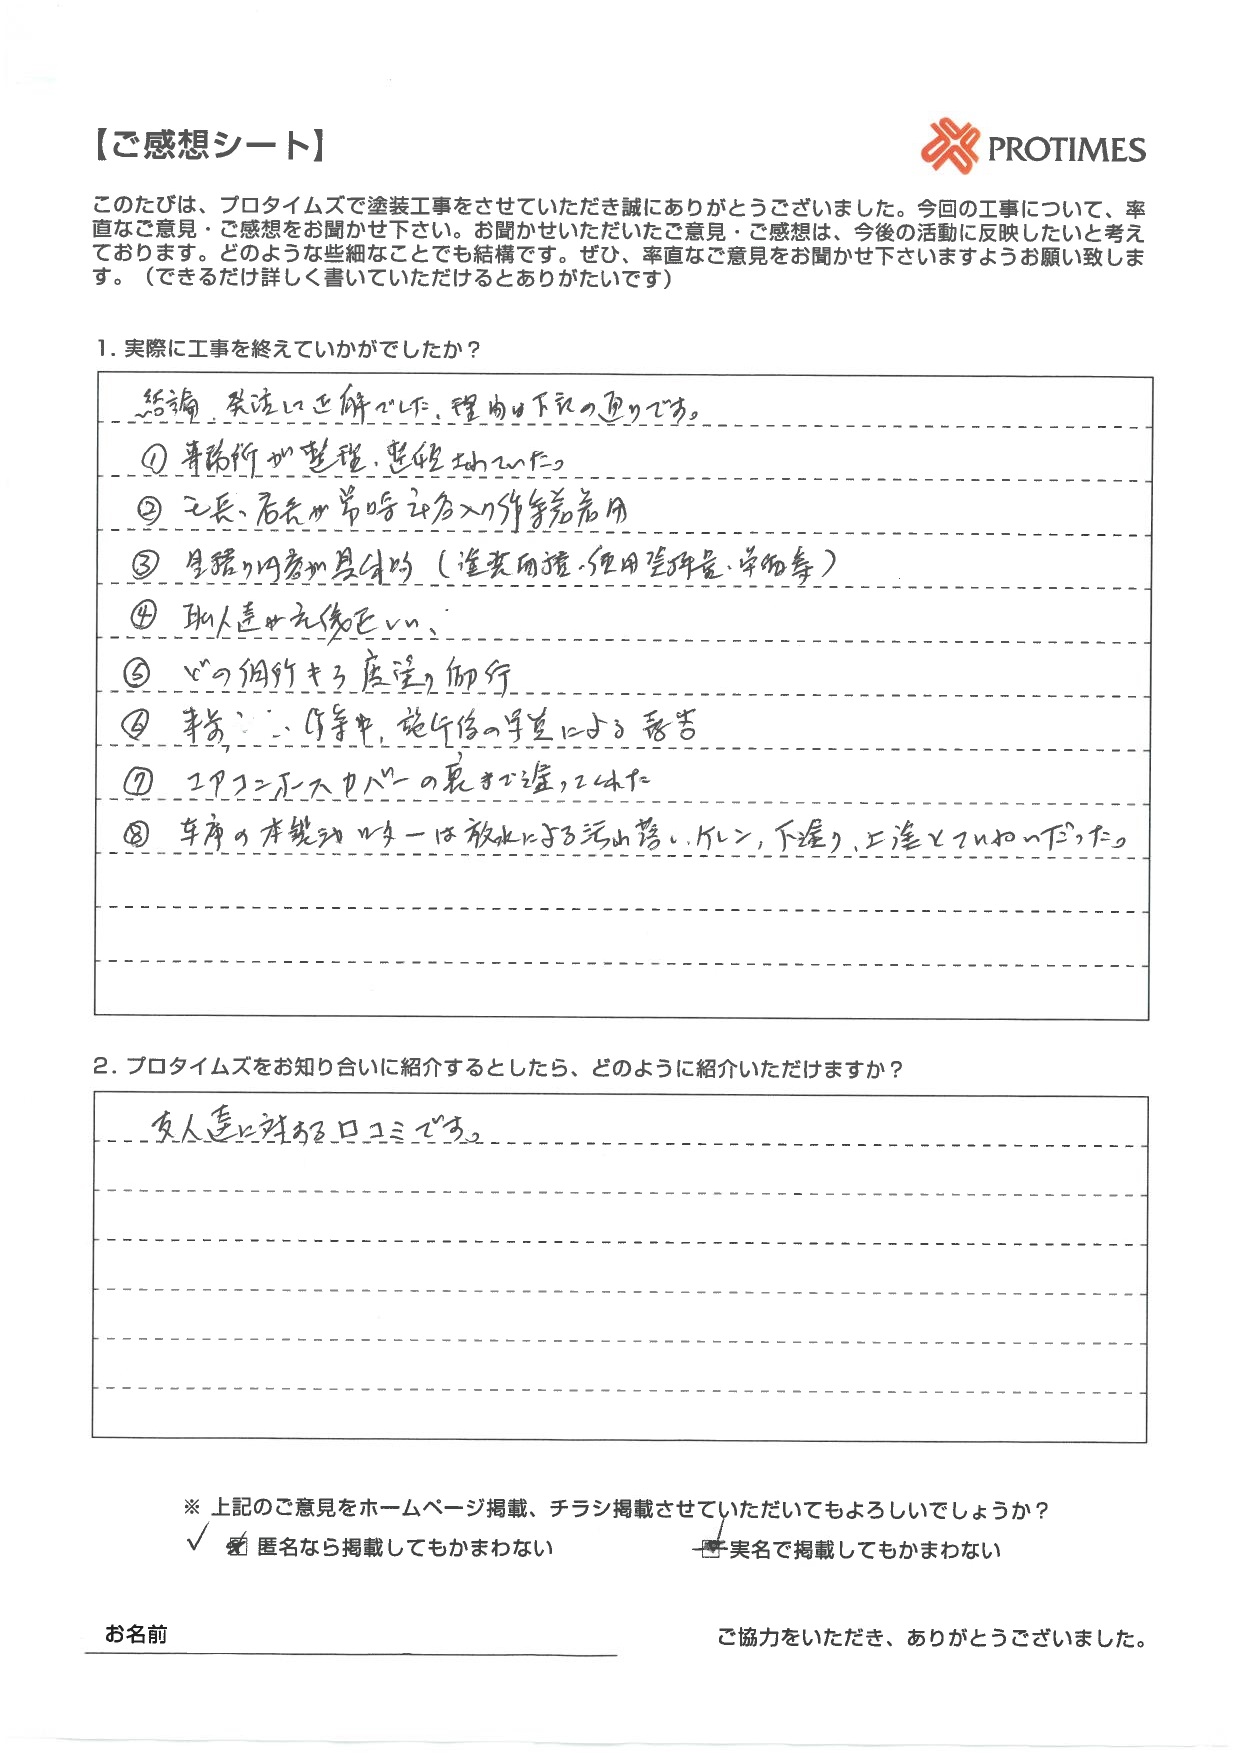 【ご感想シート】
PROTIMES
このたびは、プロタイムズで塗装工事をさせていただき誠にありがとうございました。今回の工事について、率
直なご意見・ご感想をお聞かせ下さい。お聞かせいただいたご意見・ご感想は、今後の活動に反映したいと考え
ております。どのような些細なことでも結構です。ぜひ、率直なご意見をお聞かせ下さいますようお願い致しま
す。（できるだけ詳しく書いていただけるとありがたいです）
1. 実際に工事を終えていかがでしたか？
結論、発注して正解でした、理由は下記の通りです。
① 事務所が整理、整頓されていた。
② 社長、店長が常時社名入り作業着着用
③ 見積り内容が具体的（塗装面積・使用塗料量、単価等）
④ 職人達が元気でいい、
⑤ どの個所も3度塗り
⑥ 事前 作業中、施行後の写真による報告
⑦ エアコンホースカバーの裏まで塗ってくれた
⑧ 車庫の シャッターは放水による汚れ落し、ケレン，下塗り、上塗とていねいだった。
2. プロタイムズをお知り合いに紹介するとしたら、どのように紹介いただけますか？
友人達に対する口コミです。
※ 上記のご意見をホームページ掲載、チラシ掲載させていただいてもよろしいでしょうか？
✓ ☑ 匿名なら掲載してもかまわない
実名で掲載してもかまわない
お名前
ご協力をいただき、ありがとうございました。